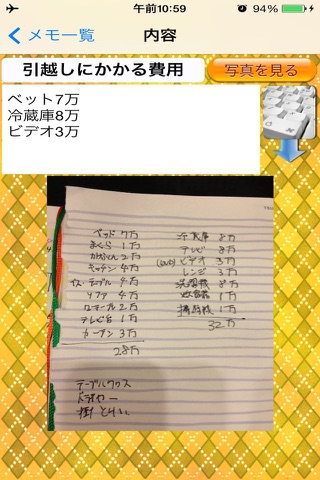 午前10:59
94%
メモ一覧
内容
引越しにかかる費用
写真を見る
ベット7万
冷蔵庫8万
ビデオ3万
ベッド 7万
まくら 1万
かけぶとん 2万
キッチン 4万
イス・テーブル 4万
ソファ 4万
ローテーブル 2万
テレビ台 1万
カーテン 3万
28万
冷蔵庫 8万
テレビ 8万
(DVD) ビデオ 3万
レンジ 3万
洗濯機 8万
炊飯器 1万
掃除機 1万
32万
テーブルクロス
ドライヤー